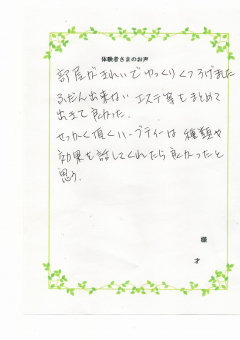 体験者さまのお声
部屋がきれいでゆっくりくつろげました
ふだん出来ない エステ等をまとめて
出きて良かった。
せっかく頂くハーブティーは 種類や
効果を話してくれたら良かったと
思う。
様
才